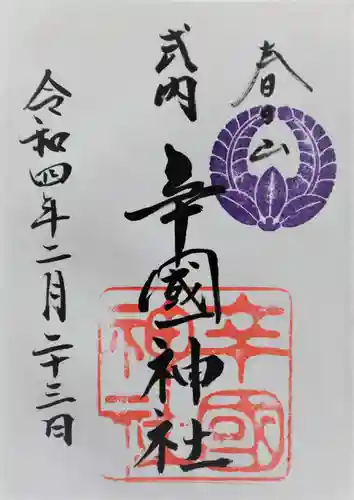 春日山
式内
辛國神社
令和四年二月二十三日
辛國
神社